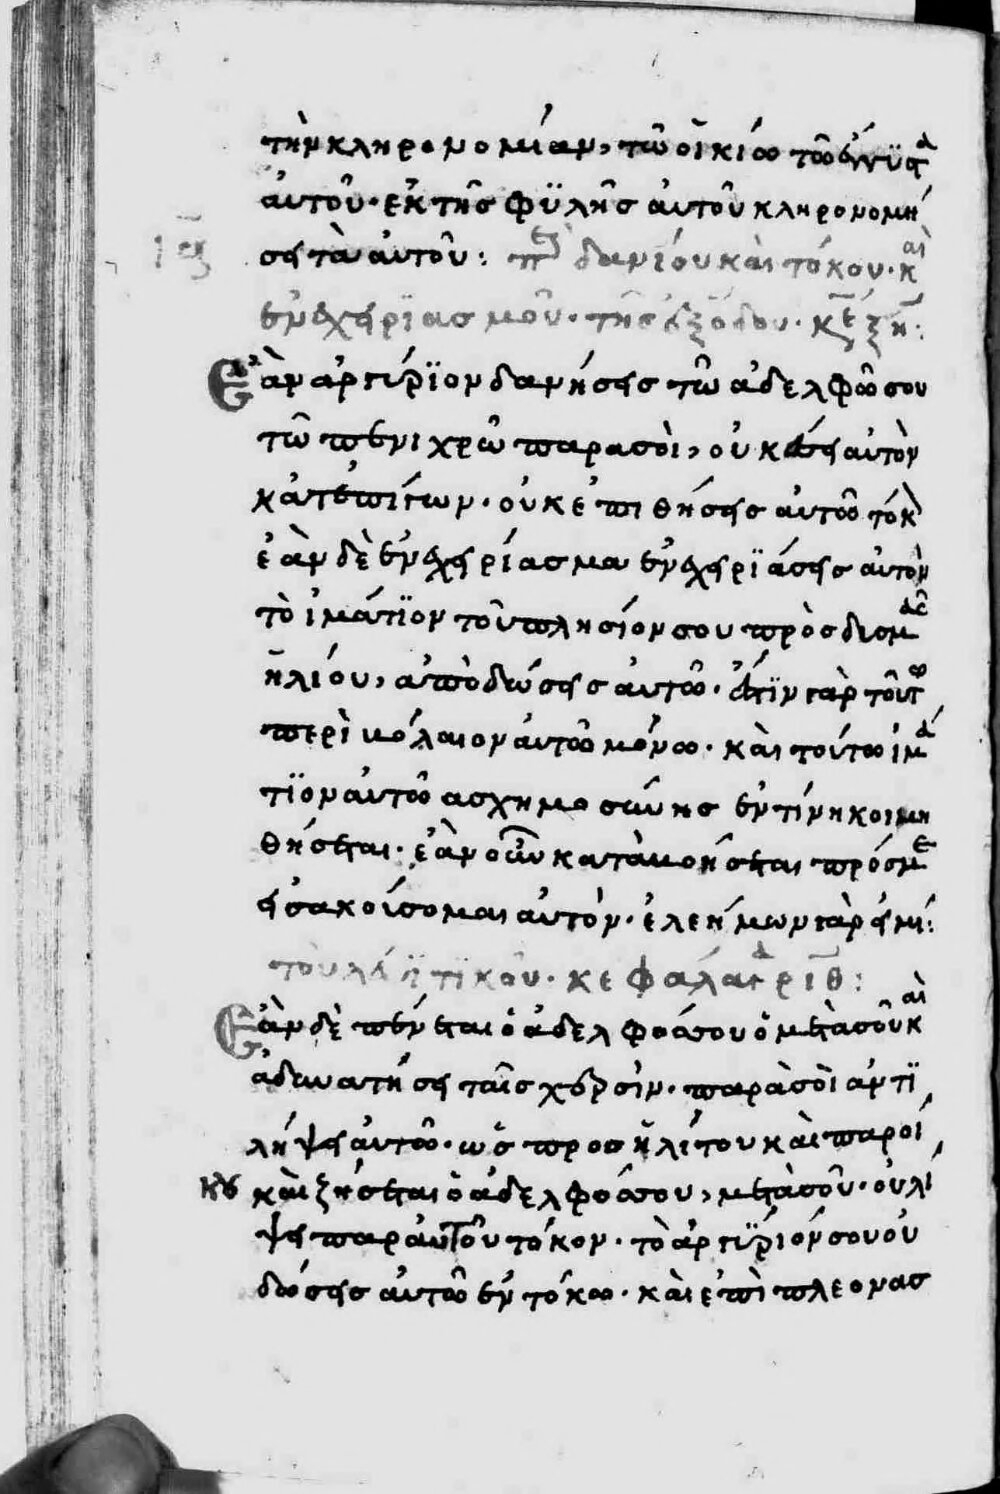 τὴν κληρονομίαν, τῶ οἰκίω τῶ ἔγγϊστα
ἀυτοῦ· ἐκ τῆς φϋλῆς ἀυτοῦ κληρονομή
σει τὰ ἀυτοῦ: περὶ δανίου καὶ τόκου· καὶ
ις
ἐνεχειρϊασμοῦ· τῆς ἐξόδου· κεξη:
Ἐὰν ἀργύρϊον δανήσεις τῶ ἀδελφῶ σου
τῶ πενιχρῶ παρασὸι, οὐκ ἔσει αὐτὸν
κατεπίγων· οὐκ ἐπιθήσεις αὐτῶ τόκον
ἐὰν δὲ ἐνεχειρίασμα ἐνεχειρϊάσεις αὐτὸν
τὸ ἱμάτϊον τοῦ πλησίον σου πρὸς δισμὰς
ἡλίου, ἀποδώσεις αὐτῶ· ἔστϊν γὰρ τοῦτο
περὶ βόλαιον ἀυτῶ μόνω· καὶ τούτω ἱμά
τϊον ἀυτῶ ασχημοσύνης ἐν τίνη κοιμη
θήσεται· ἐὰν οὖν καταβοήσεται πρόσμε
εἰσακούσομαι αὐτόν· ἐλεήμων γὰρ εἰμί:
τοῦ λευϊτϊκοῦ· κεφάλαια ριθ:
Ἐὰν δὲ πένεται ὁ ἀδελφόσσου ὁ μετασοῦ καὶ
ἀδυνατήσει ταῖς χερσὶν· παρὰσὸι αντϊ
λήψει ἀυτῶ· ὡς προσηλίτου καὶ παροί
κου καὶ ζήσεται ὁ ἀδελφόσσου, μετὰσοῦ· οὐ λί
ψει παρ ἀυτοῦ τόκον· τὸ ἀργύριόν σου οὐ
δώσεις ἀυτῶ ἐν τόκω· καὶ ἐπὶ πλεονασ